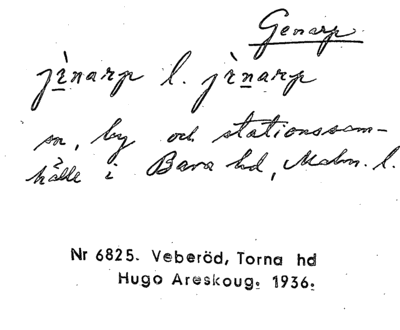 Genarp
jìnarp l. jìnarp
sn, by och stationssam-
hälle i Bara hd, Malm. l.
Nr 6825. Veberöd, Torna hd
Hugo Areskoug. 1936.